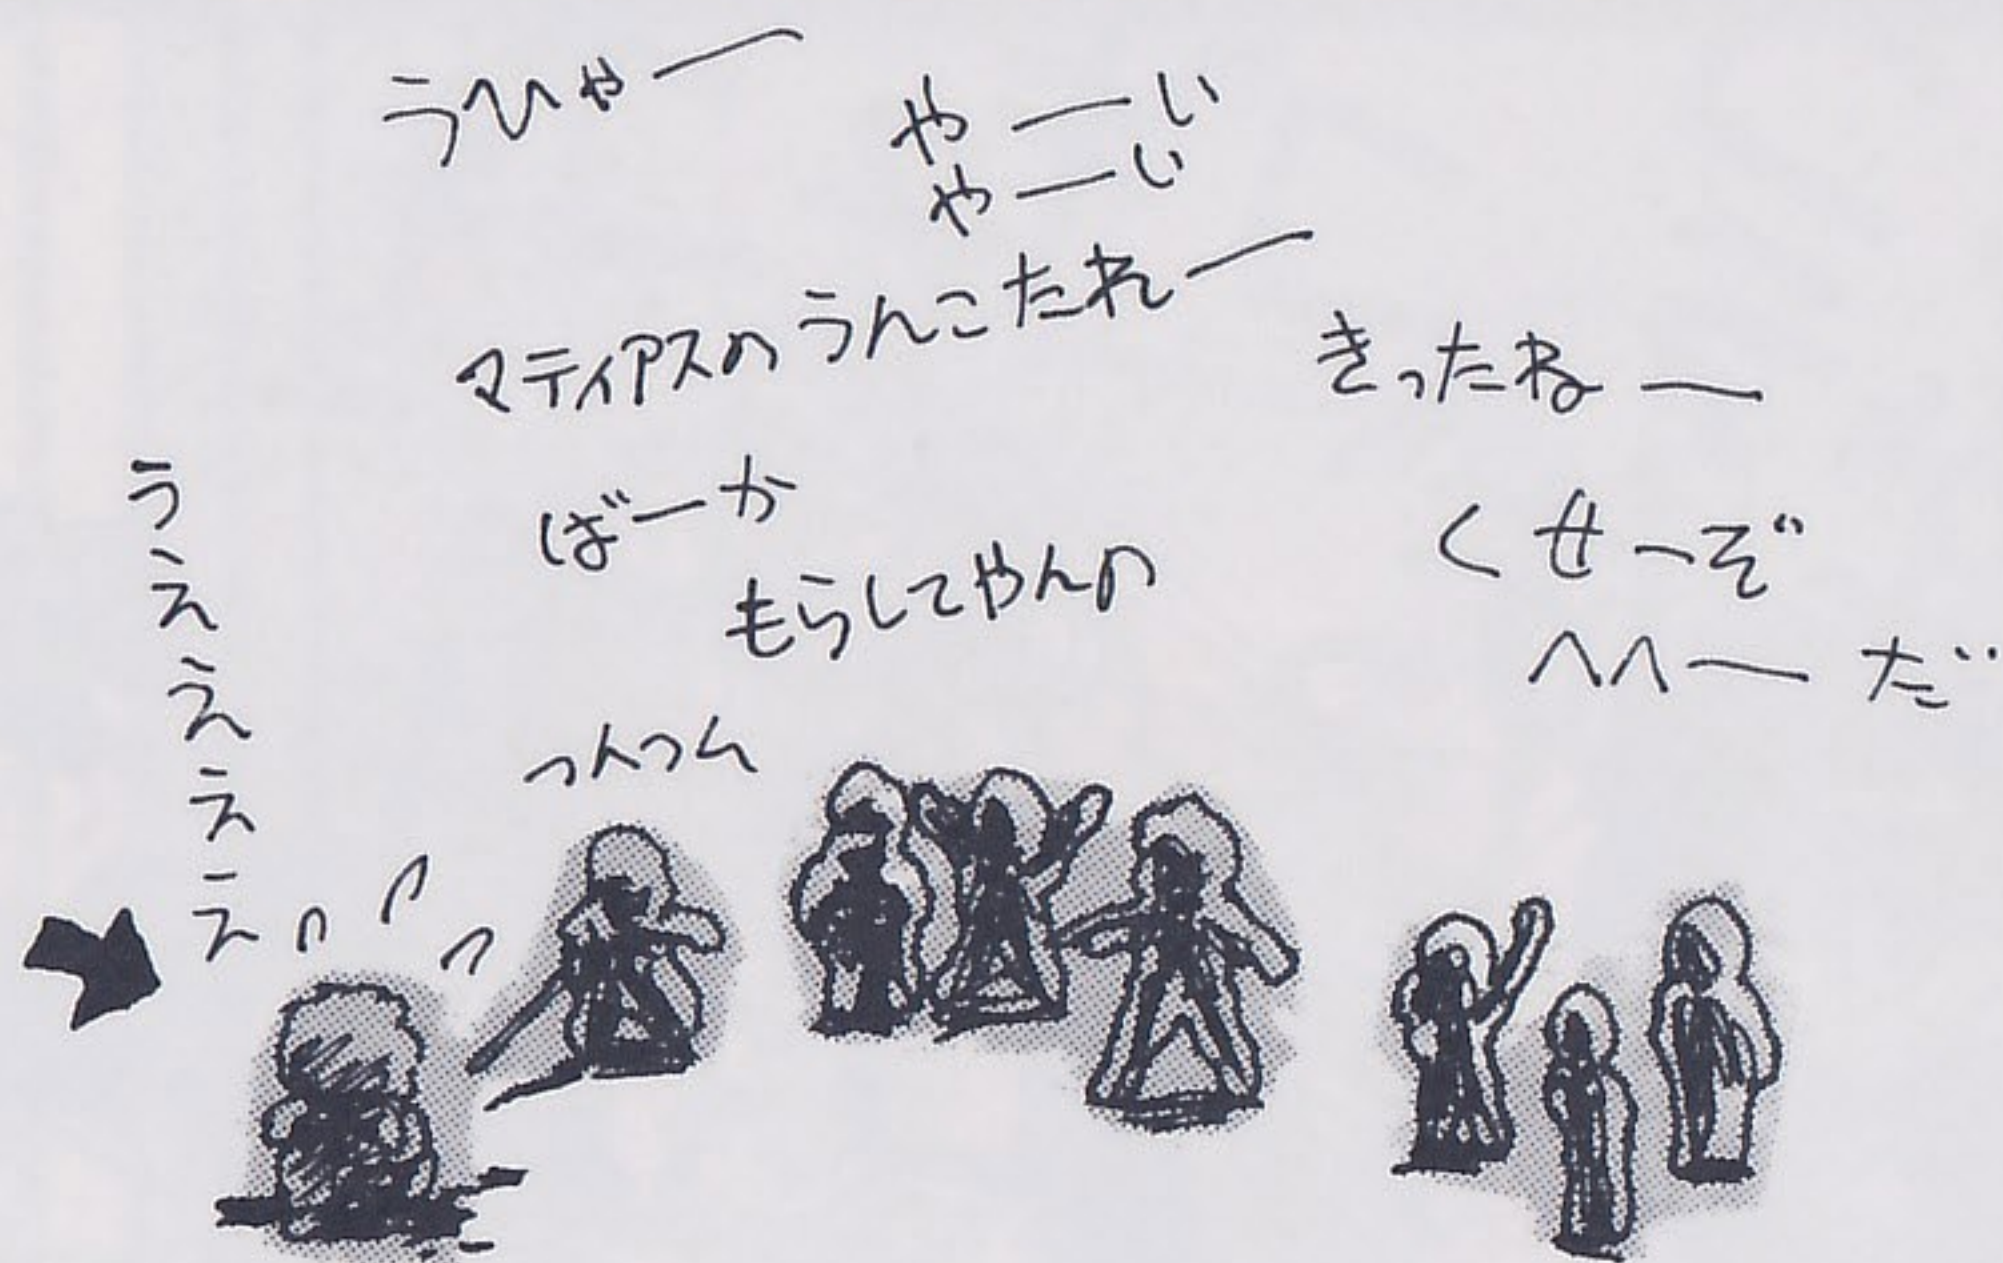 うひゃー
やーい
やーい
マティアスのうんこたれー
きったねー
ばーか
くせーぞ
もらしてやんの
へへーだ
うええええ
つんつん